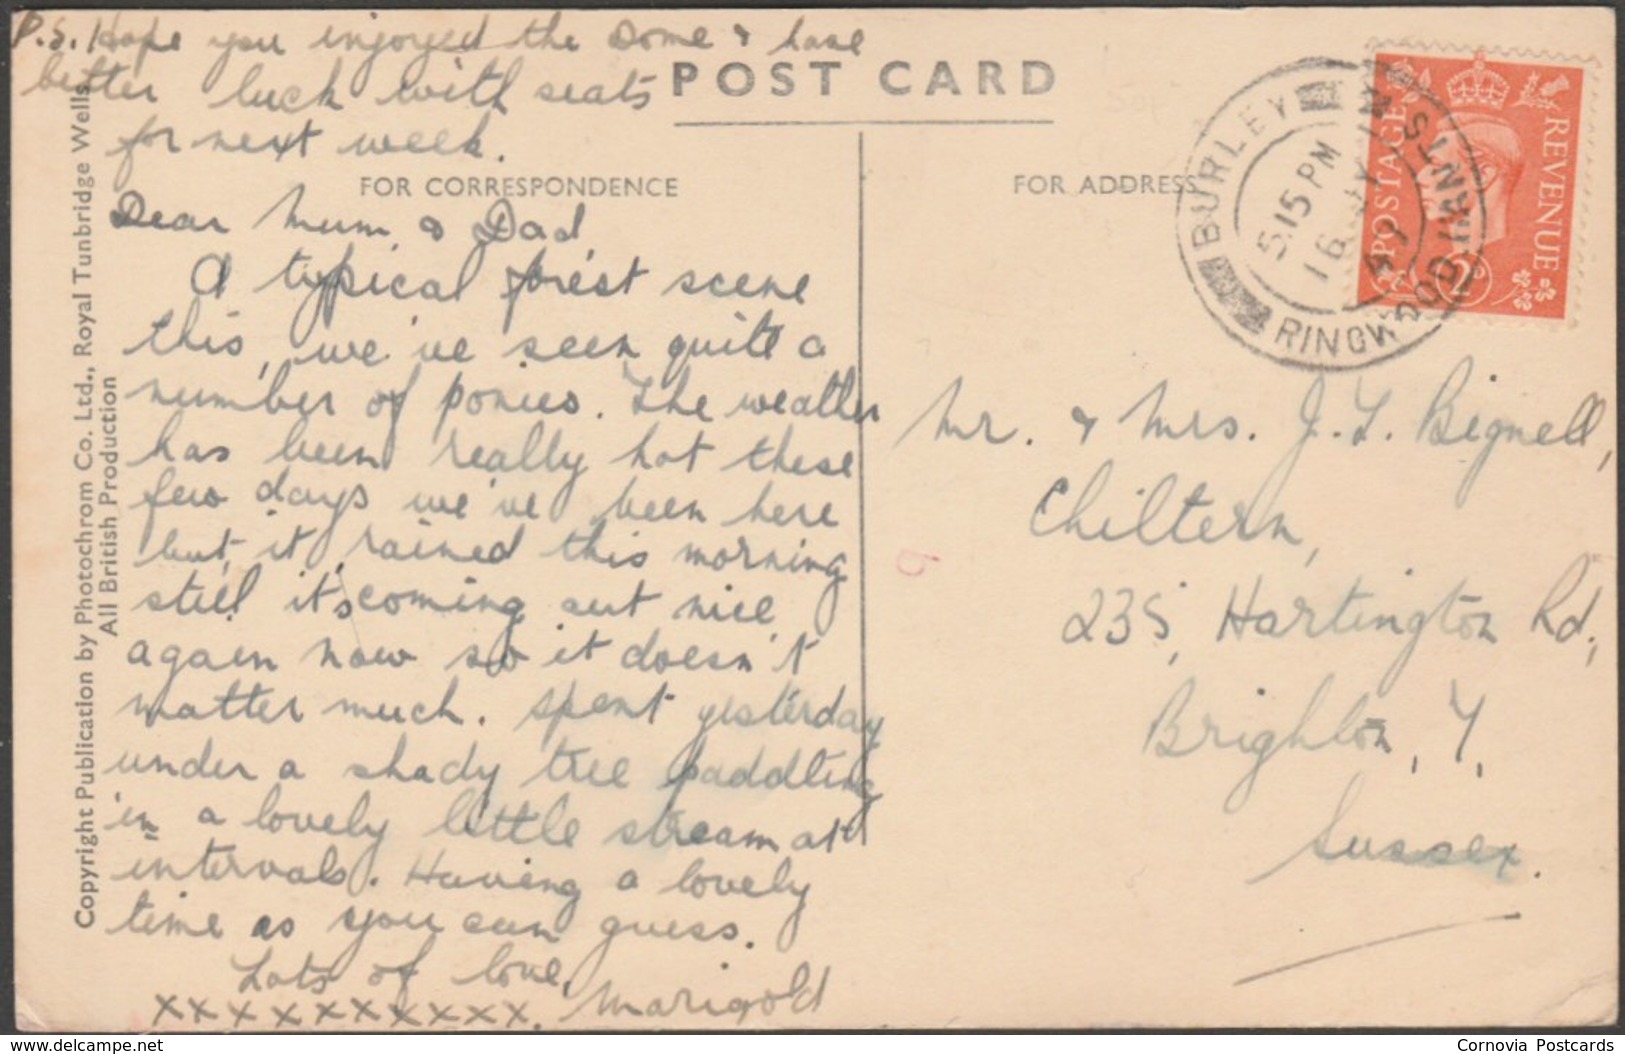 P.S. Hope you injoyed the Dome & have
better luck with seats
for next week.
POST CARD
FOR CORRESPONDENCE
FOR ADDRESS
Dear Mum & Dad,
A typical forest scene
this, we've seen quite a
number of ponies. The weather
has been really hot these
few days we've been here
but, it, rained this morning
still it's coming out nice
again now so it doesn't
matter much. Spent yesterday
under a shady tree paddling
in a lovely little stream at
intervals. Having a lovely
time as you can guess.
Lots of love,
Marigold
xxxxxxxxxxx.
Copyright Publication by Photochrom Co. Ltd., Royal Tunbridge Wells.
All British Production
BURLEY
RINGWOOD HANTS
5.15 PM
16
49
POSTAGE
REVENUE
Mr. & Mrs. J. L. Bignell,
Chiltern,
235, Hartington Rd.,
Brighton, 7,
Sussex.
delcampe.net
Cornovia Postcards